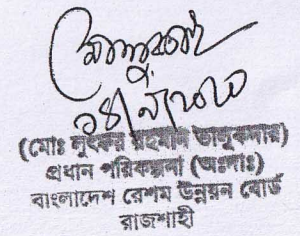 (মোঃ লুৎফর রহমান তালুকদার)
প্রধান পরিকল্পনা (অঃদাঃ)
বাংলাদেশ রেশম উন্নয়ন বোর্ড
রাজশাহী